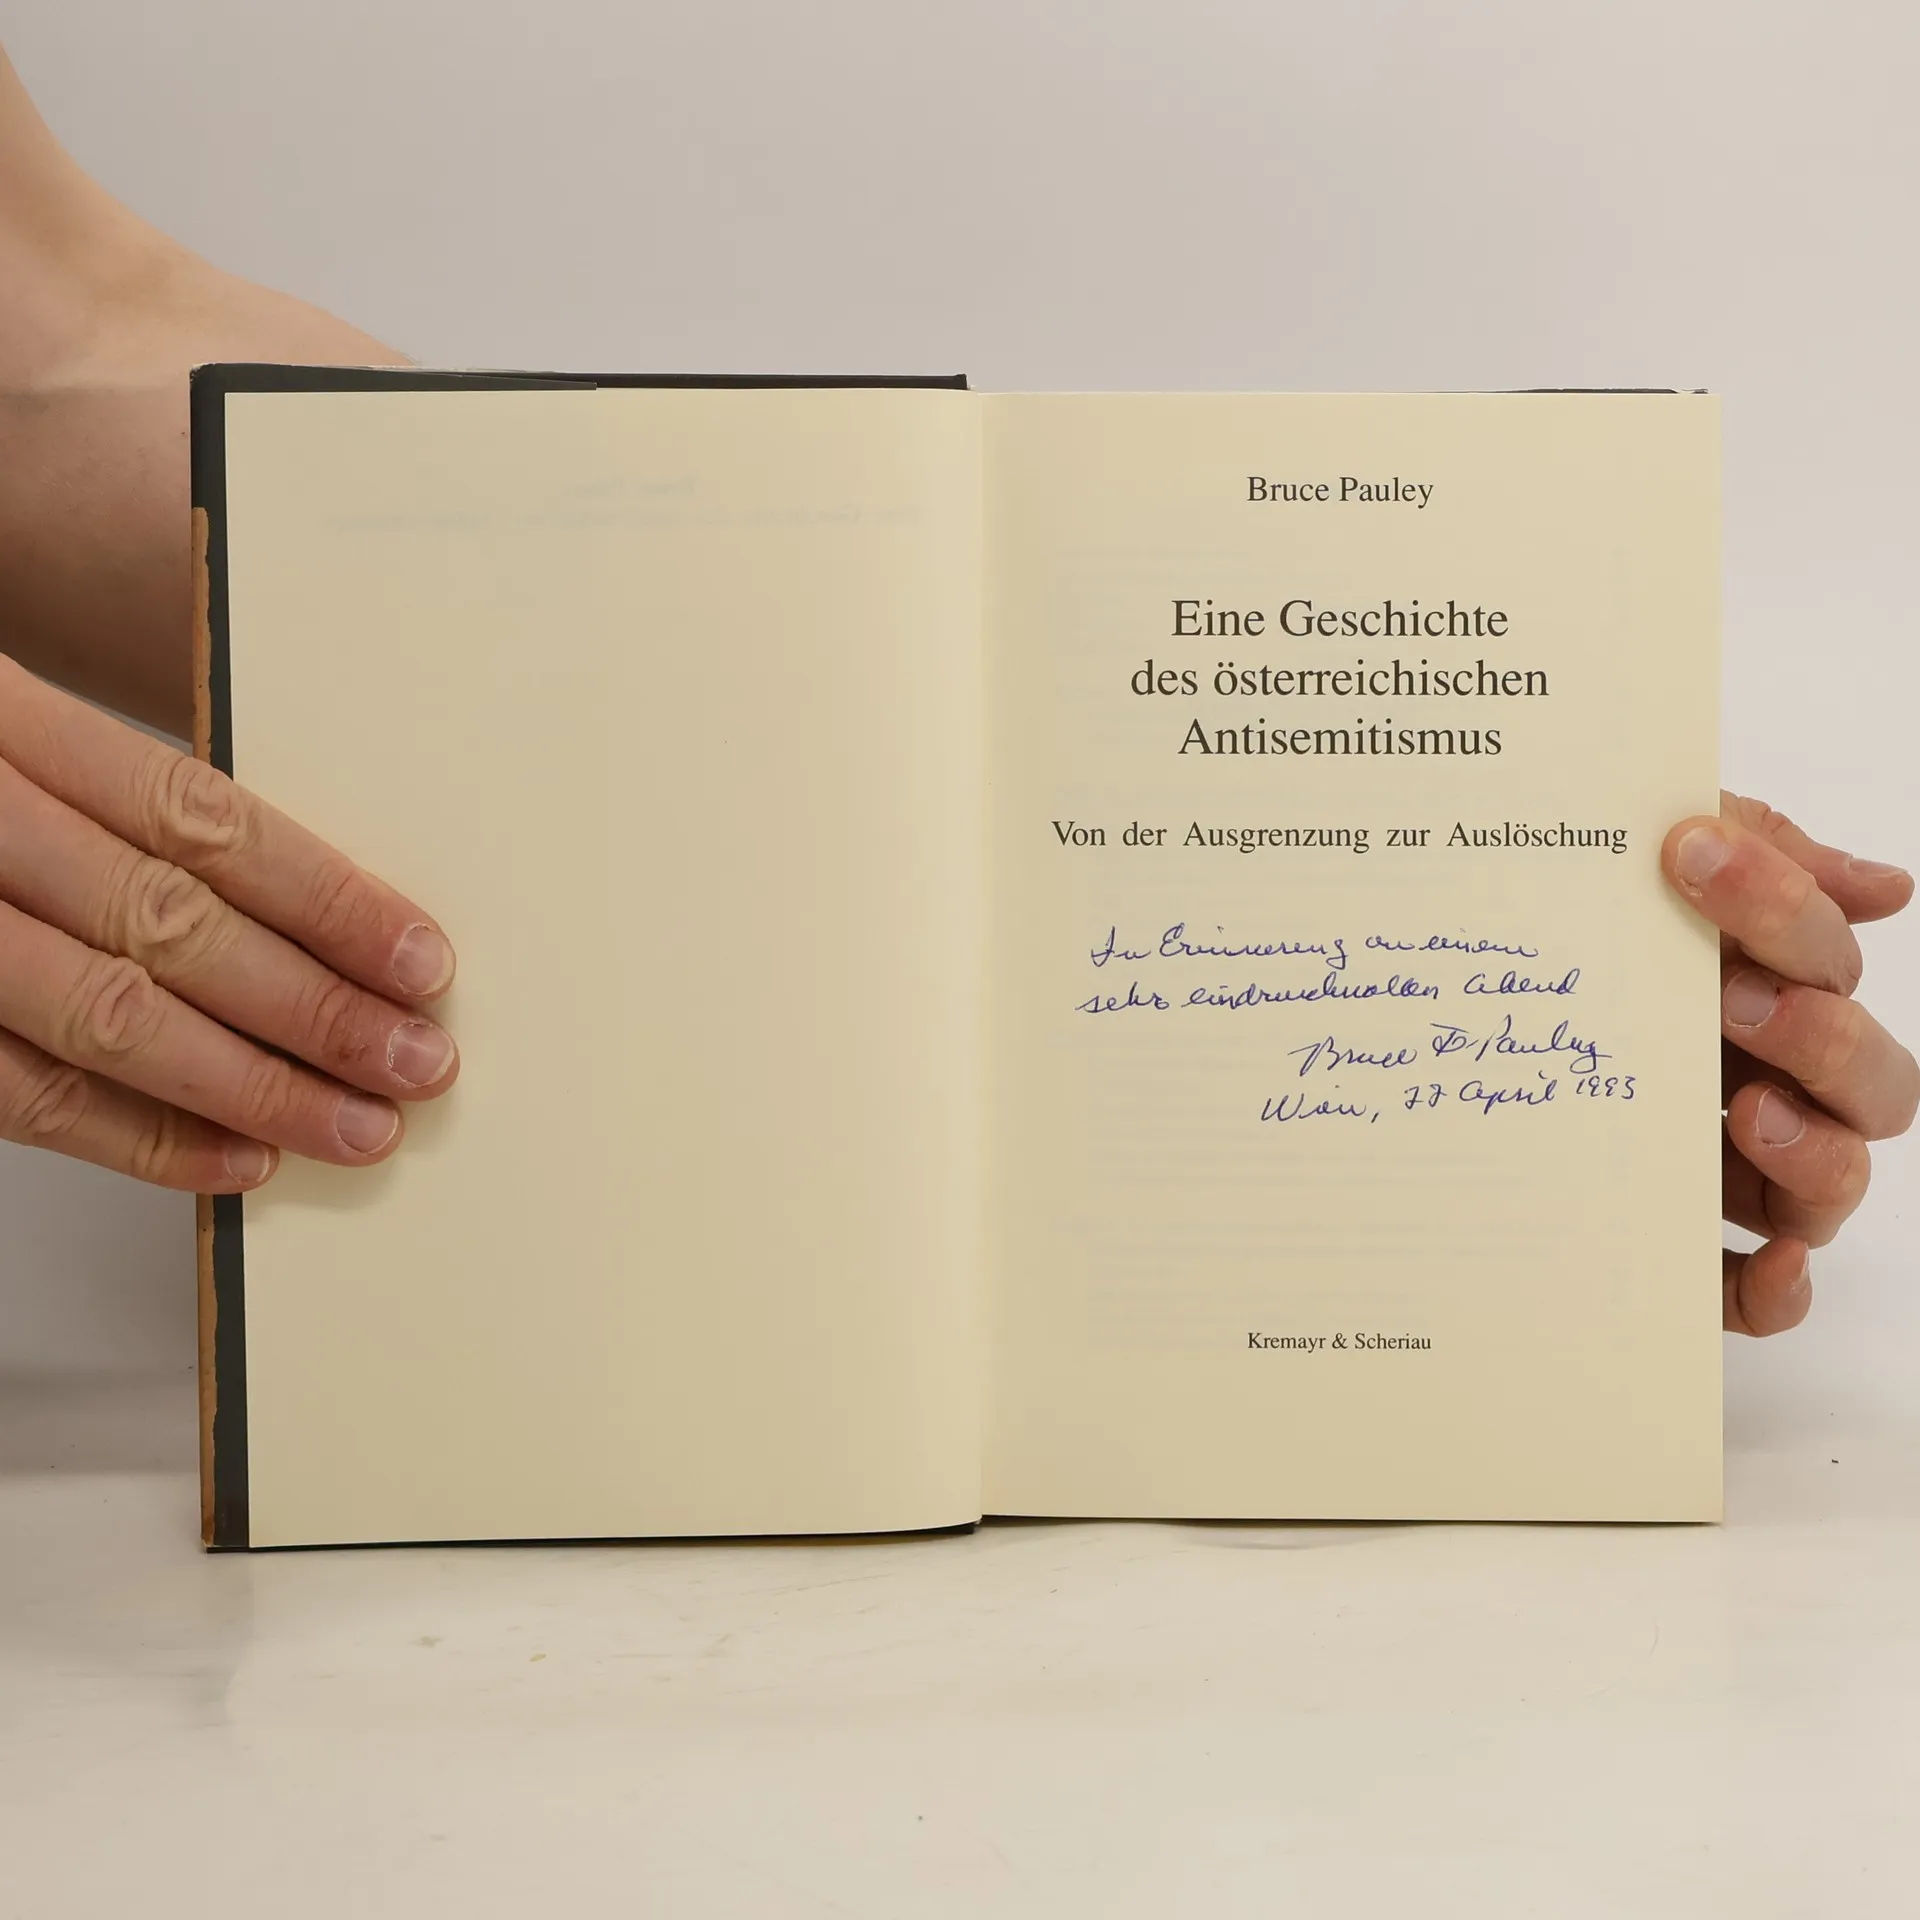 Bruce Pauley
Eine Geschichte
des österreichischen
Antisemitismus
Von der Ausgrenzung zur Auslöschung
In Erinnerung an einem
sehr eindrucksvollen Abend
Bruce F. Pauley
Wien, 22 April 1993
Kremayr & Scheriau